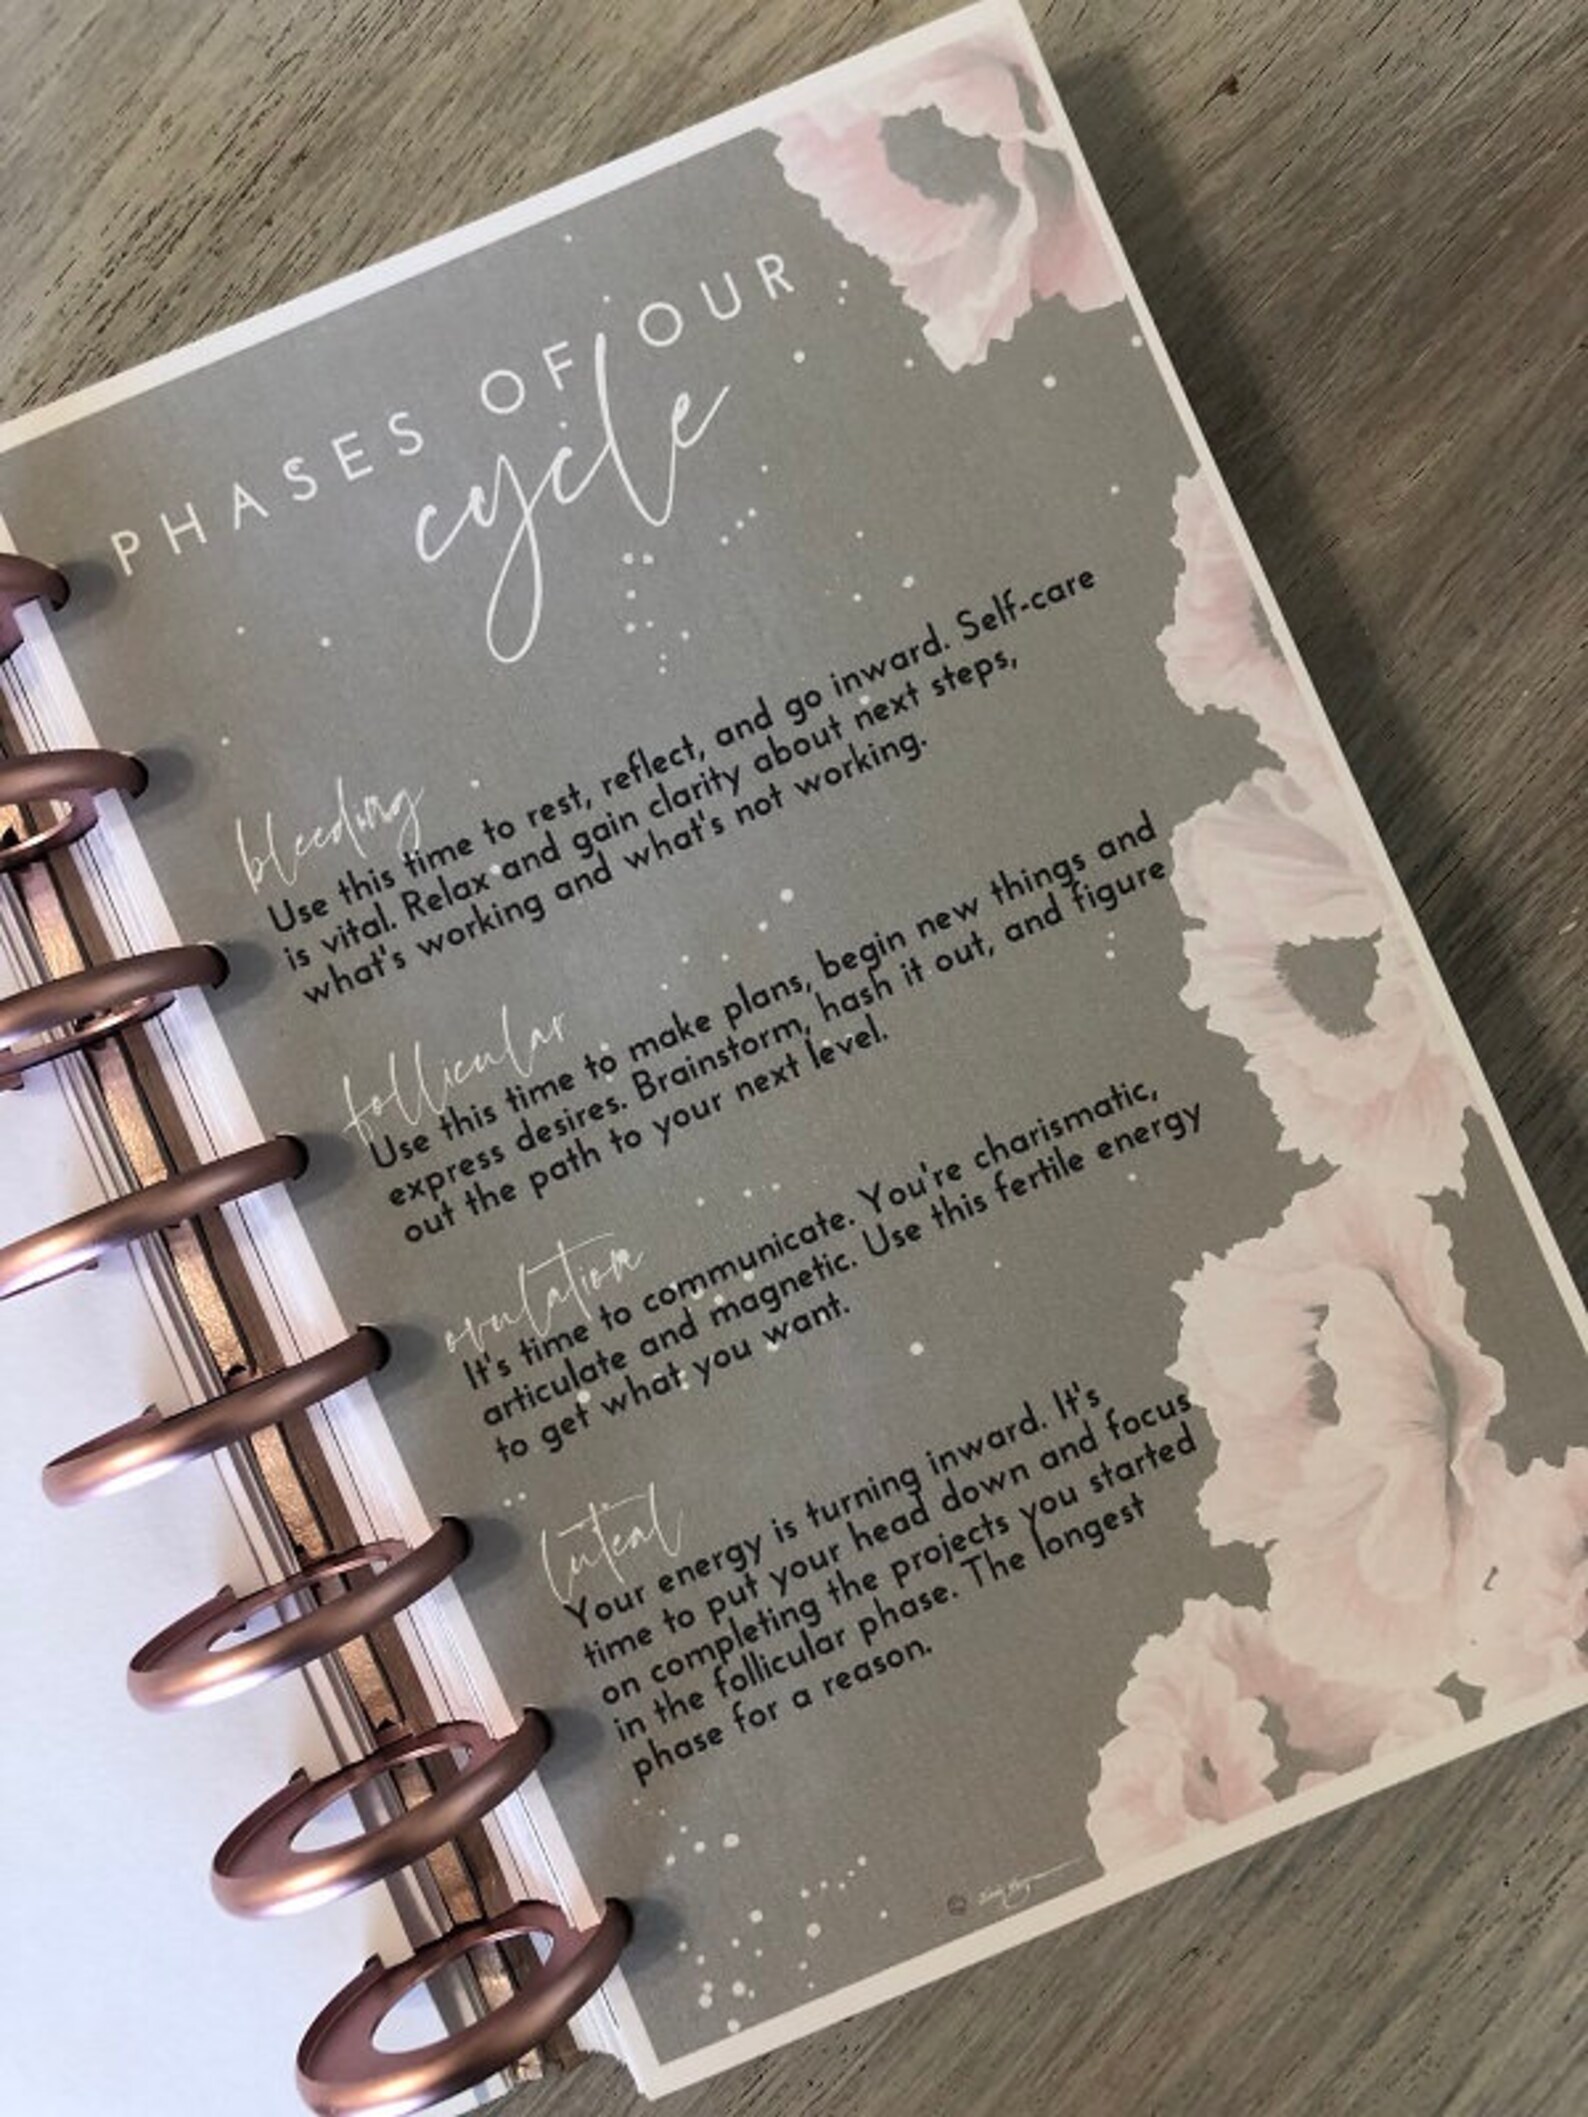 PHASES OF OUR
cycle
bleeding
Use this time to rest, reflect, and go inward. Self-care
is vital. Relax and gain clarity about next steps,
what's working and what's not working.
follicular
Use this time to make plans, begin new things and
express desires. Brainstorm, hash it out, and figure
out the path to your next level.
ovulation
It's time to communicate. You're charismatic,
articulate and magnetic. Use this fertile energy
to get what you want.
luteal
Your energy is turning inward. It's
time to put your head down and focus
on completing the projects you started
in the follicular phase. The longest
phase for a reason.